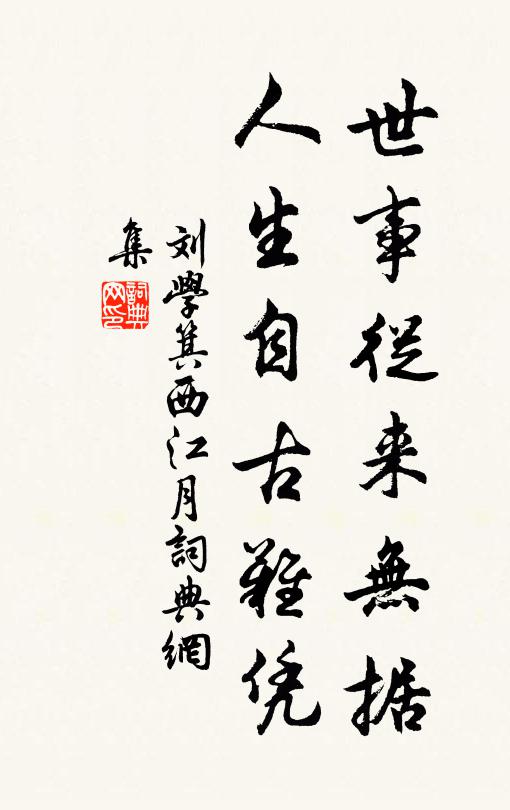 世事從来無据
人生自古難凭
刘學箕西江月詞典網
集
詞典網印